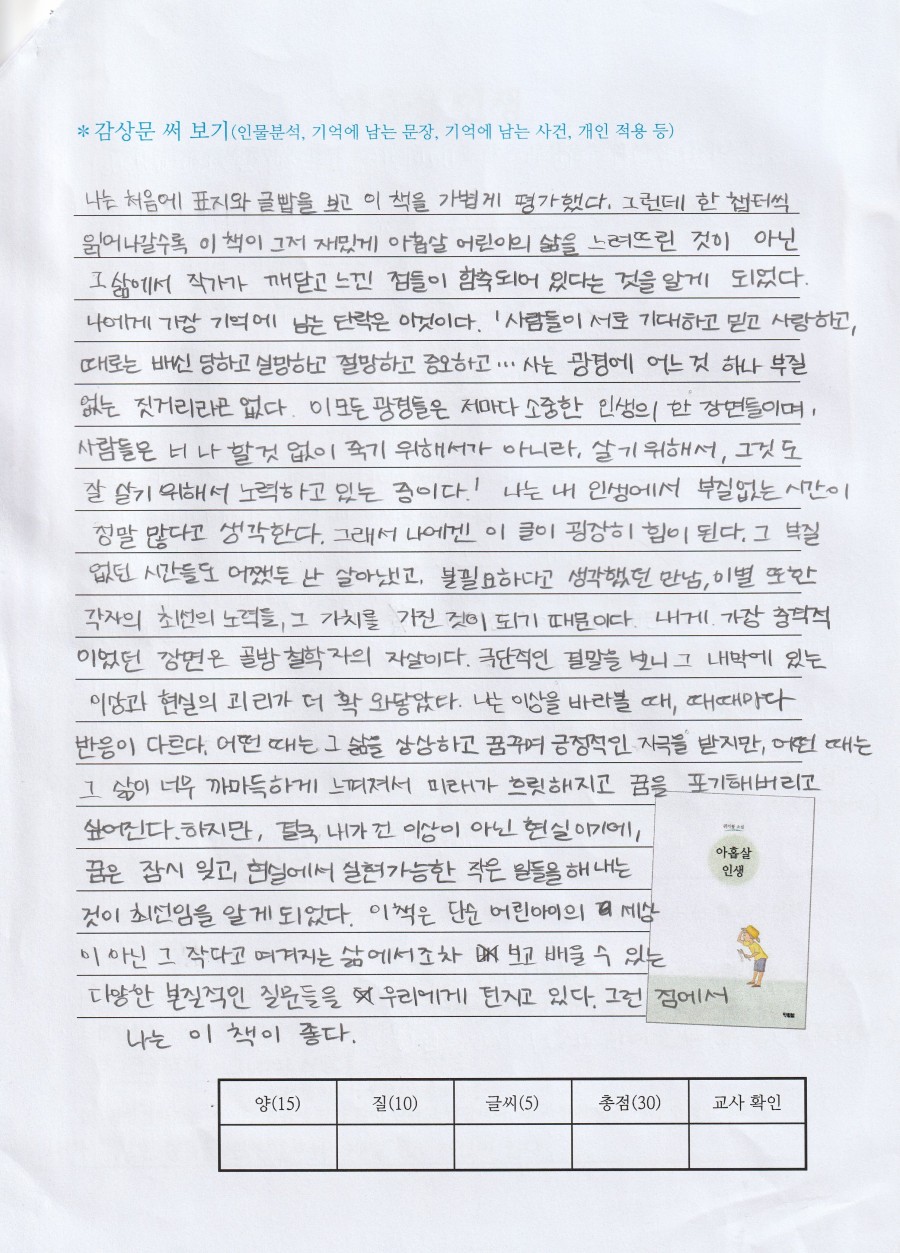 *감상문 써 보기(인물분석, 기억에 남는 문장, 기억에 남는 사건, 개인 적용 등)
나는 처음에 표지와 글밥을 보고 이 책을 가볍게 평가했다. 그런데 한 챕터씩
읽어나갈수록 이 책이 그저 재밌게 아홉살 어린이의 삶을 느려뜨린 것이 아닌
그 삶에서 작가가 깨닫고 느낀 점들이 함축되어 있다는 것을 알게 되었다.
나에게 가장 기억에 남는 단락은 이것이다. '사람들이 서로 기대하고 믿고 사랑하고,
때로는 배신 당하고 실망하고 절망하고 증오하고… 사는 광경에 어느 것 하나 부질
없는 짓거리라곤 없다. 이 모든 광경들은 저마다 소중한 인생의 한 장면들이며,
사람들은 너 나 할것 없이 죽기 위해서가 아니라, 살기 위해서, 그것도
잘 살기 위해서 노력하고 있는 중이다.' 나는 내 인생에서 부질없는 시간이
정말 많다고 생각한다. 그래서 나에겐 이 글이 굉장히 힘이 된다. 그 부질
없던 시간들도 어쨌든 난 살아냈고, 불필요하다고 생각했던 만남, 이별 또한
각자의 최선의 노력들, 그 가치를 가진 것이 되기 때문이다. 내게 가장 충격적
이었던 장면은 골방철학자의 자살이다. 극단적인 결말을 보니 그 내막에 있는
이상과 현실의 괴리가 더 확 와닿았다. 나는 이상을 바라볼 때, 때때마다
반응이 다르다. 어떤 때는 그 삶을 상상하고 꿈꾸며 긍정적인 자극을 받지만, 어떤 때는
그 삶이 너무 까마득하게 느껴져서 미래가 흐릿해지고 꿈을 포기해버리고
싶어진다. 하지만, 결국 내가 건 이상이 아닌 현실이기에,
꿈은 잠시 잊고, 현실에서 실현가능한 작은 일들을 해내는
것이 최선임을 알게되었다. 이책은 단순 어린아이의 세상
이 아닌 그 작다고 여겨지는 삶에서조차 보고 배울 수 있는
다양한 본질적인 질문들을 우리에게 던지고 있다. 그런 점에서
나는 이 책이 좋다.
아홉살
인생
양(15) 질(10) 글씨(5) 총점(30) 교사 확인